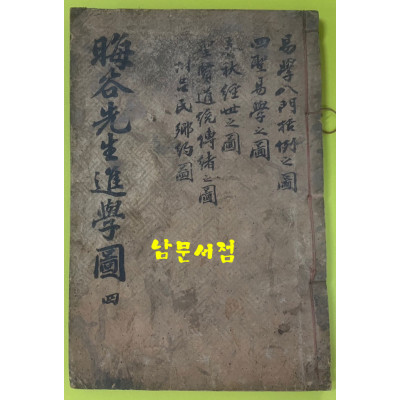 易學八門指例之圖
四聖易學之圖
春秋經世之圖
聖賢道統傳緖之圖
附呂氏鄕約圖
晦谷先生進學圖 四
남문서점